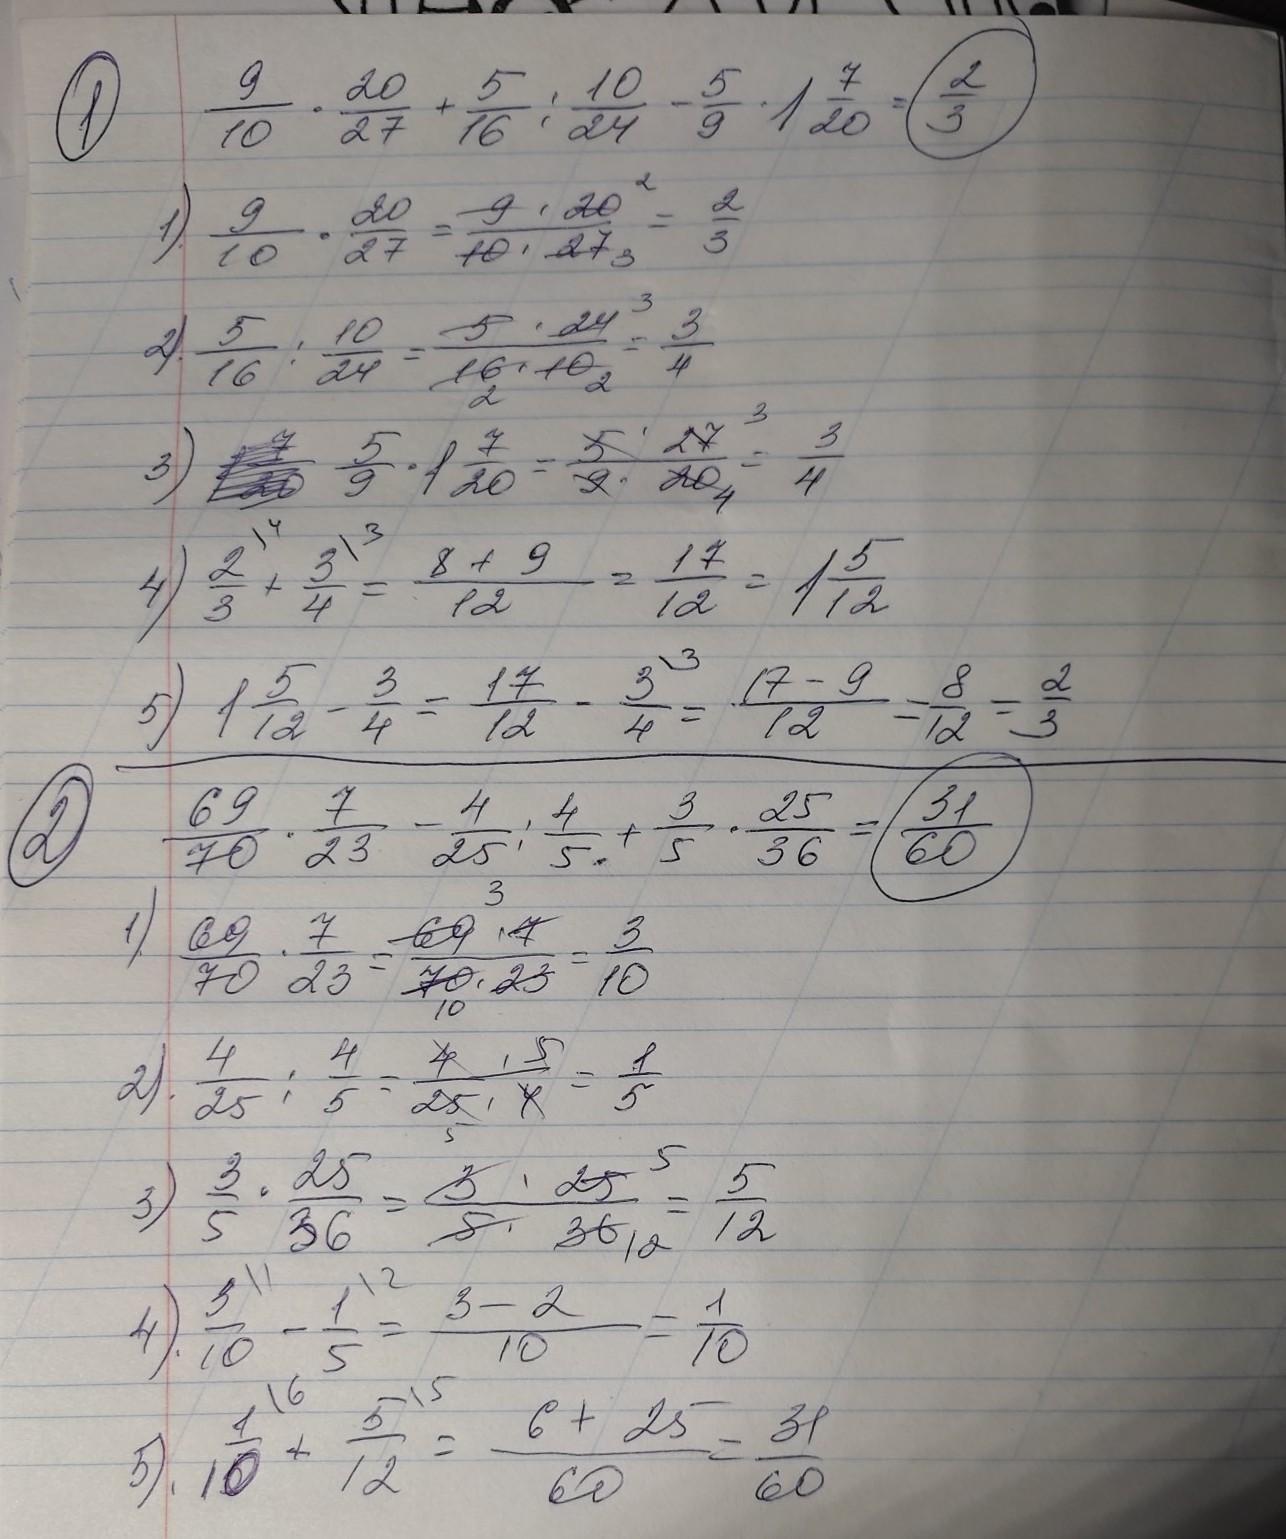 ① 9/10 · 20/27 + 5/16 : 10/24 - 5/9 · 1 7/20 = 2/3
1) 9/10 · 20/27 = 9 · 20 2 / 10 · 27 3 = 2/3
2) 5/16 : 10/24 = 5 · 24 3 / 16 2 · 10 2 = 3/4
3) 5/9 · 1 7/20 = 5 · 27 3 / 9 · 20 4 = 3/4
4) 2/3 \4 + 3/4 \3 = 8 + 9 / 12 = 17/12 = 1 5/12
5) 1 5/12 - 3/4 = 17/12 - 3/4 \3 = 17 - 9 / 12 = 8/12 = 2/3
② 69/70 · 7/23 - 4/25 : 4/5 + 3/5 · 25/36 = 31/60
1). 69/70 · 7/23 = 69 3 · 7 / 70 10 · 23 = 3/10
2). 4/25 : 4/5 = 4 · 5 / 25 5 · 4 = 1/5
3) 3/5 · 25/36 = 3 · 25 5 / 5 · 36 12 = 5/12
4). 3/10 \1 - 1/5 \2 = 3 - 2 / 10 = 1/10
5). 1/10 \6 + 5/12 \5 = 6 + 25 / 60 = 31/60